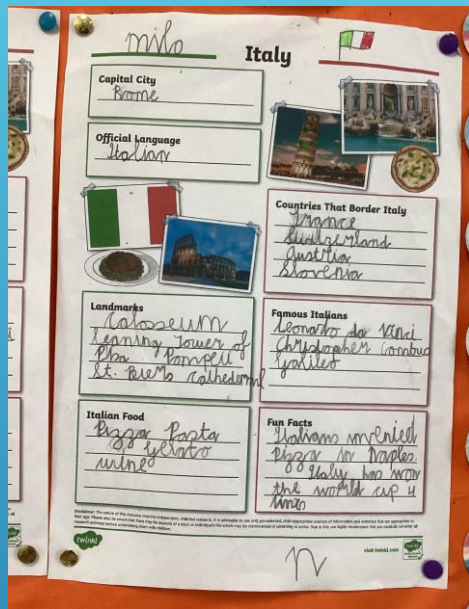 milo
Italy
Capital City
Rome
Official Language
Italian
Countries That Border Italy
France
Switzerland
Austria
Slovenia
Landmarks
Colosseum
leaning Tower of
Pisa Pompeii
St. Cathederal
Famous Italians
Leonardo da Vinci
Christopher
Galileo
Italian Food
Pizza Pasta
Gelato
wine
Fun Facts
Italians invented
Pizza in Naples.
Italy has won
the world cup 4
times
twinkl
visit twinkl.com
n